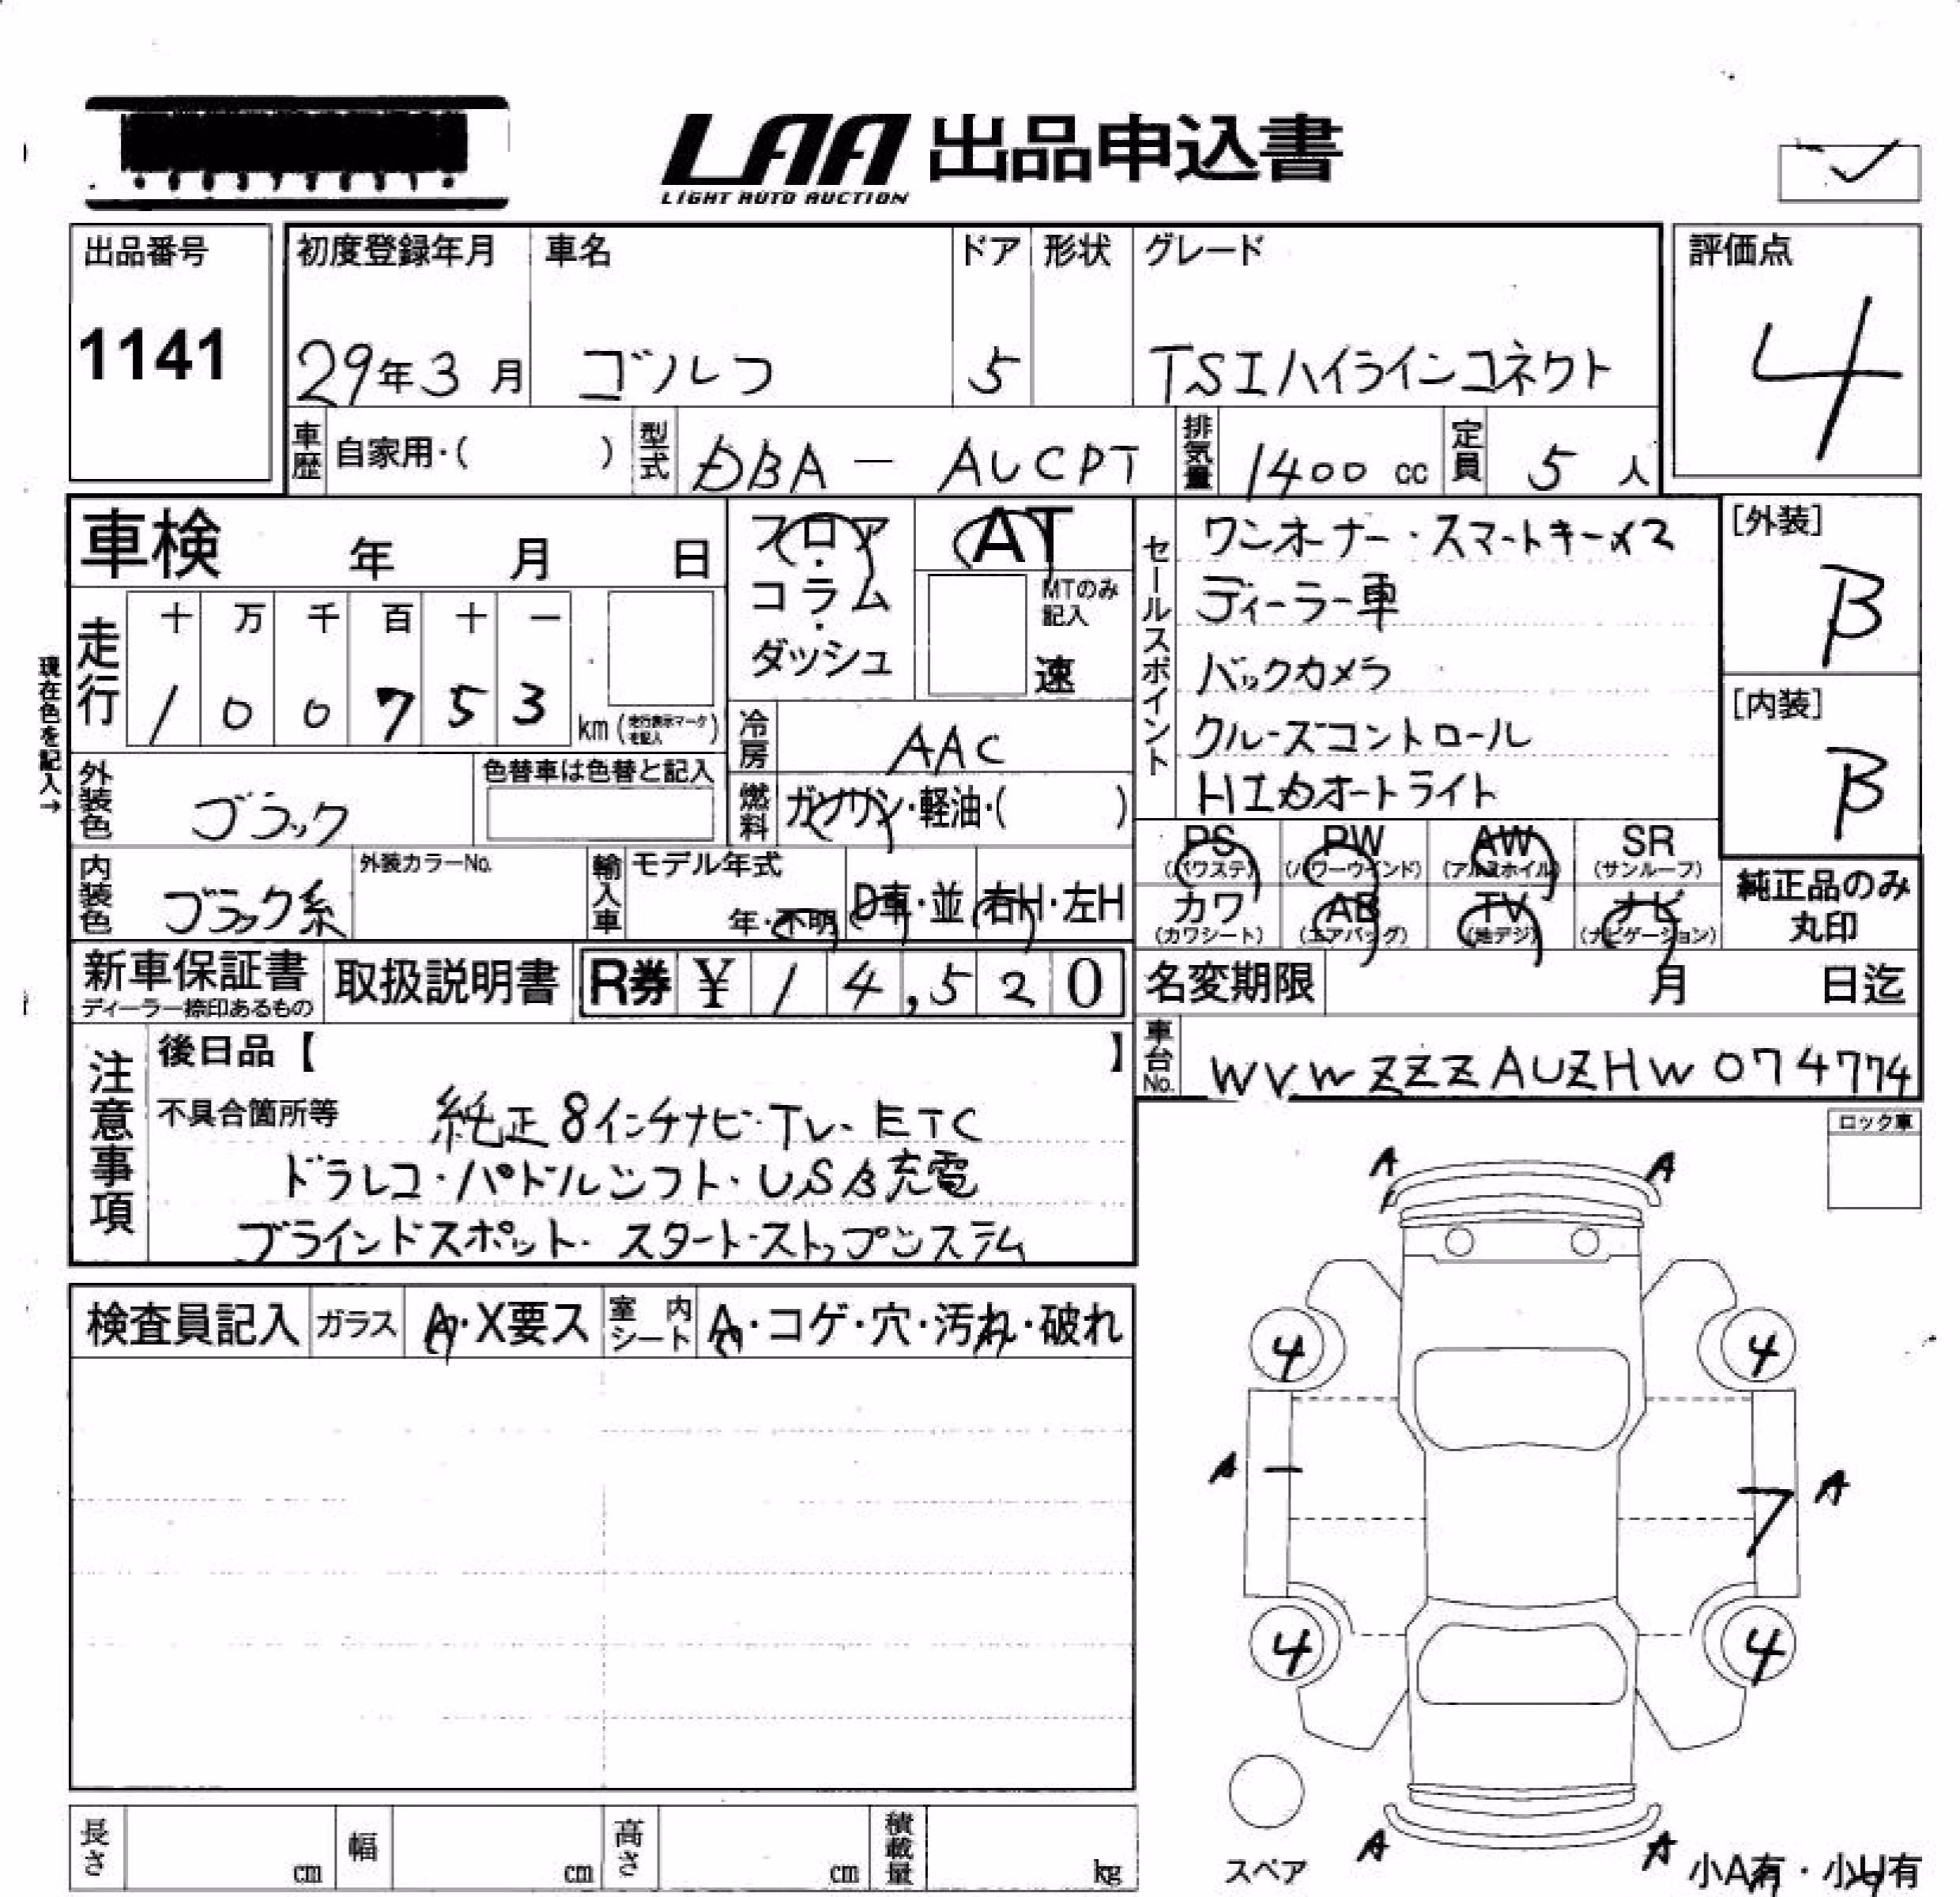 LAA 出品申込書
LIGHT AUTO AUCTION
出品番号
1141
初度登録年月
29年3月
車名
ゴルフ
ドア
5
形状
グレード
TSIハイラインコネクト
評価点
4
車歴
自家用・( )
型式
DBA - AUCPT
排気量
1400 cc
定員
5 人
車検 年 月 日
フロア・コラム・ダッシュ
AT
MTのみ記入
速
セールスポイント
ワンオーナー・スマートキー×2
ディーラー車
バックカメラ
クルーズコントロール
HIDオートライト
[外装]
B
[内装]
B
現在色を記入→
走行
十 万 千 百 十 一
1 0 0 7 5 3
km (走行表示マークを記入)
冷房
AAC
外装色
ブラック
色替車は色替と記入
燃料
ガソリン・軽油・( )
内装色
ブラック系
外装カラーNo.
輸入車
モデル年式
年・不明
D車・並
右H・左H
PS (パワステ)
PW (パワーウインド)
AW (アルミホイル)
SR (サンルーフ)
カワ (カワシート)
AB (エアバッグ)
TV (地デジ)
ナビ (ナビゲーション)
純正品のみ丸印
新車保証書
ディーラー捺印あるもの
取扱説明書
R券 ¥ 14,520
名変期限 月 日迄
車台No.
WVWZZZAUZHW074774
注意事項
後日品【 】
不具合箇所等
純正8インチナビ・TV・ETC
ドラレコ・パドルシフト・USB充電
ブラインドスポット・スタートストップシステム
ロック車
検査員記入
ガラス
A・X要ス
室内シート
A・コゲ・穴・汚れ・破れ
A A
4 4
A
7 A
4 4
A A
スペア
小A有・小U有
長さ cm
幅 cm
高さ cm
積載量 kg